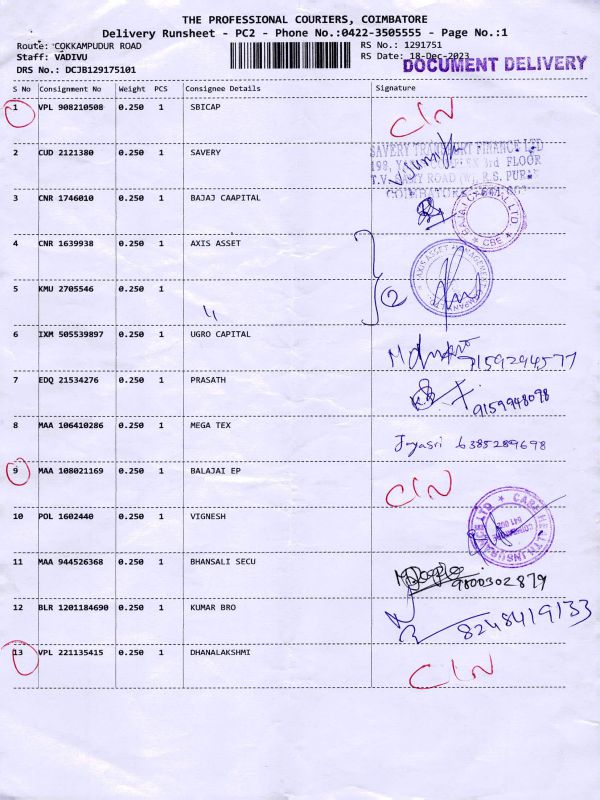 THE PROFESSIONAL COURIERS, COIMBATORE
Delivery Runsheet - PC2 - Phone No.:0422-3505555 - Page No.:1
Route: COKKAMPUDUR ROAD
Staff: VADIVU
DRS No.: DCJB129175101
RS No.: 1291751
RS Date: 18-Dec-2023
DOCUMENT DELIVERY
S No Consignment No Weight PCS Consignee Details Signature
1 VPL 908210508 0.250 1 SBICAP CLN
2 CUD 2121380 0.250 1 SAVERY
SAVERY FINANCE LTD
198, 3rd FLOOR
3 CNR 1746010 0.250 1 BAJAJ CAAPITAL
4 CNR 1639938 0.250 1 AXIS ASSET
AXIS ASSET MANAGEMENT
5 KMU 2705546 0.250 1 〃 2
6 IXM 505539897 0.250 1 UGRO CAPITAL 7159294577
7 EDQ 21534276 0.250 1 PRASATH 9159948098
8 MAA 106410286 0.250 1 MEGA TEX Jayasri 6385289698
9 MAA 108021169 0.250 1 BALAJAI EP CLN
10 POL 1602440 0.250 1 VIGNESH
CARE HEALTH INSURANCE LTD
11 MAA 944526368 0.250 1 BHANSALI SECU 9800302879
12 BLR 1201184690 0.250 1 KUMAR BRO 8248419133
13 VPL 221135415 0.250 1 DHANALAKSHMI CLN